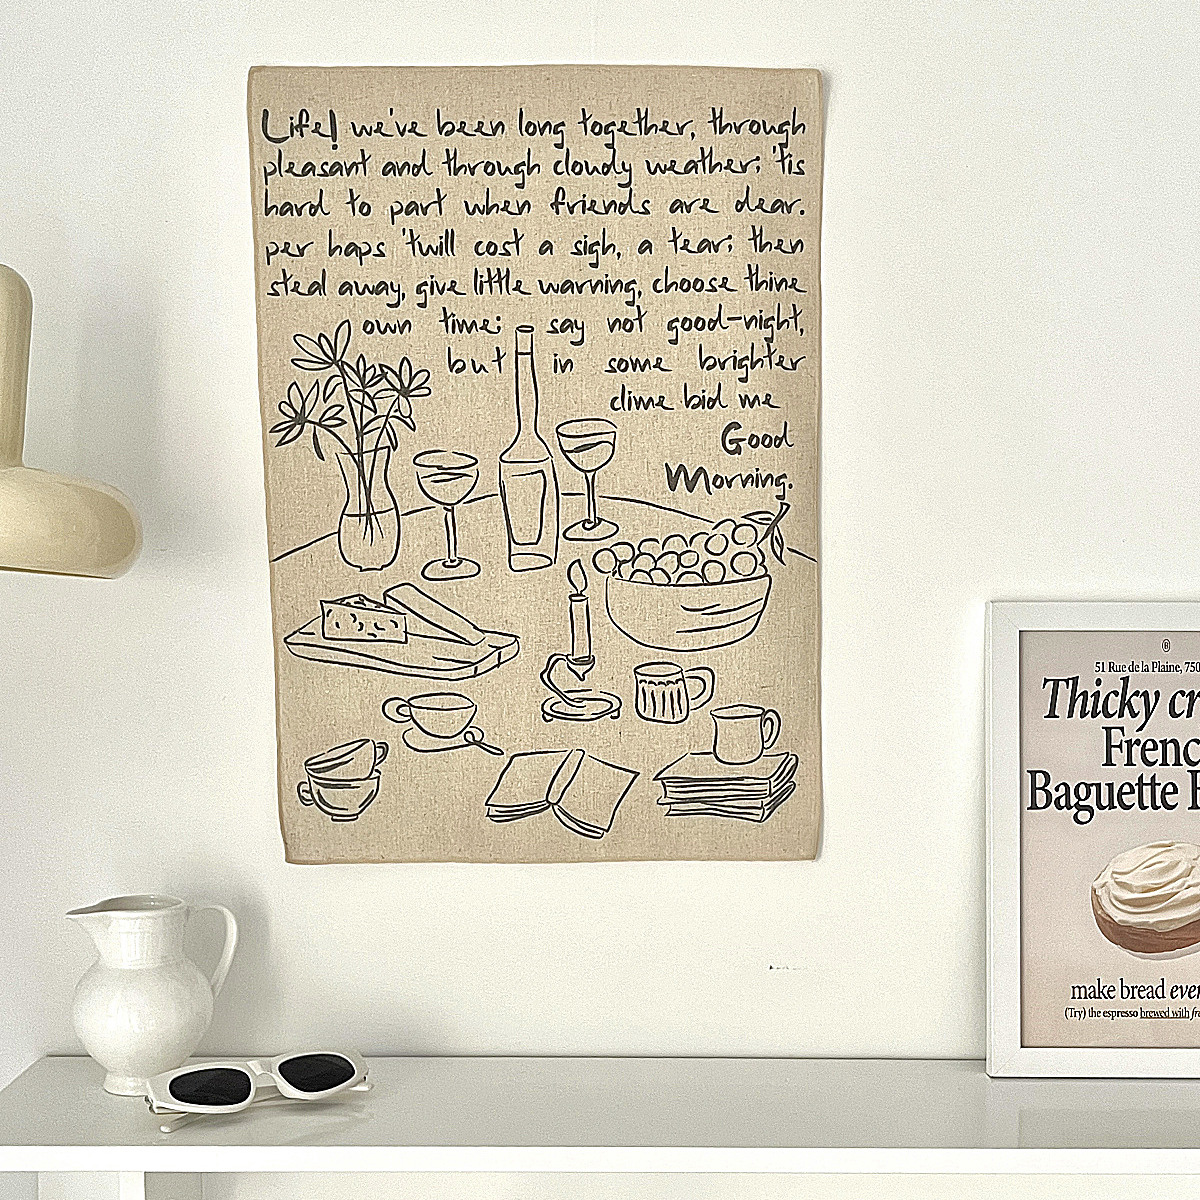 Life! we've been long together, through
pleasant and through cloudy weather; 'tis
hard to part when friends are dear.
per haps 'twill cost a sigh, a tear; then
steal away, give little warning, choose thine
own time; say not good-night,
but in some brighter
clime bid me
Good
Morning.
51 Rue de la Plaine, 750
Thicky cr
Frenc
Baguette
make bread ever
(Try) the espresso brewed with fre